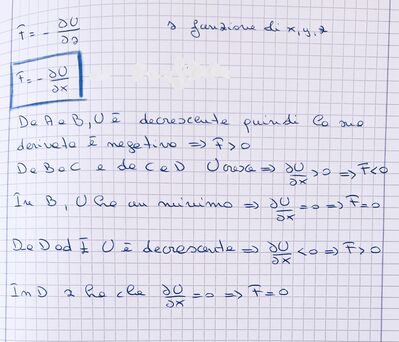 F̄ = - ∂U/∂s s funzione di x, y, z
F̄ = - ∂U/∂x
Da A e B, U è decrescente quindi la sua
derivata è negativa ⇒ F̄ > 0
Da B e C e da C e D U cresce ⇒ ∂U/∂x > 0 ⇒ F̄ < 0
In B, U ha un minimo ⇒ ∂U/∂x = 0 ⇒ F̄ = 0
Da D ad I U è decrescente ⇒ ∂U/∂x < 0 ⇒ F̄ > 0
In D si ha che ∂U/∂x = 0 ⇒ F̄ = 0